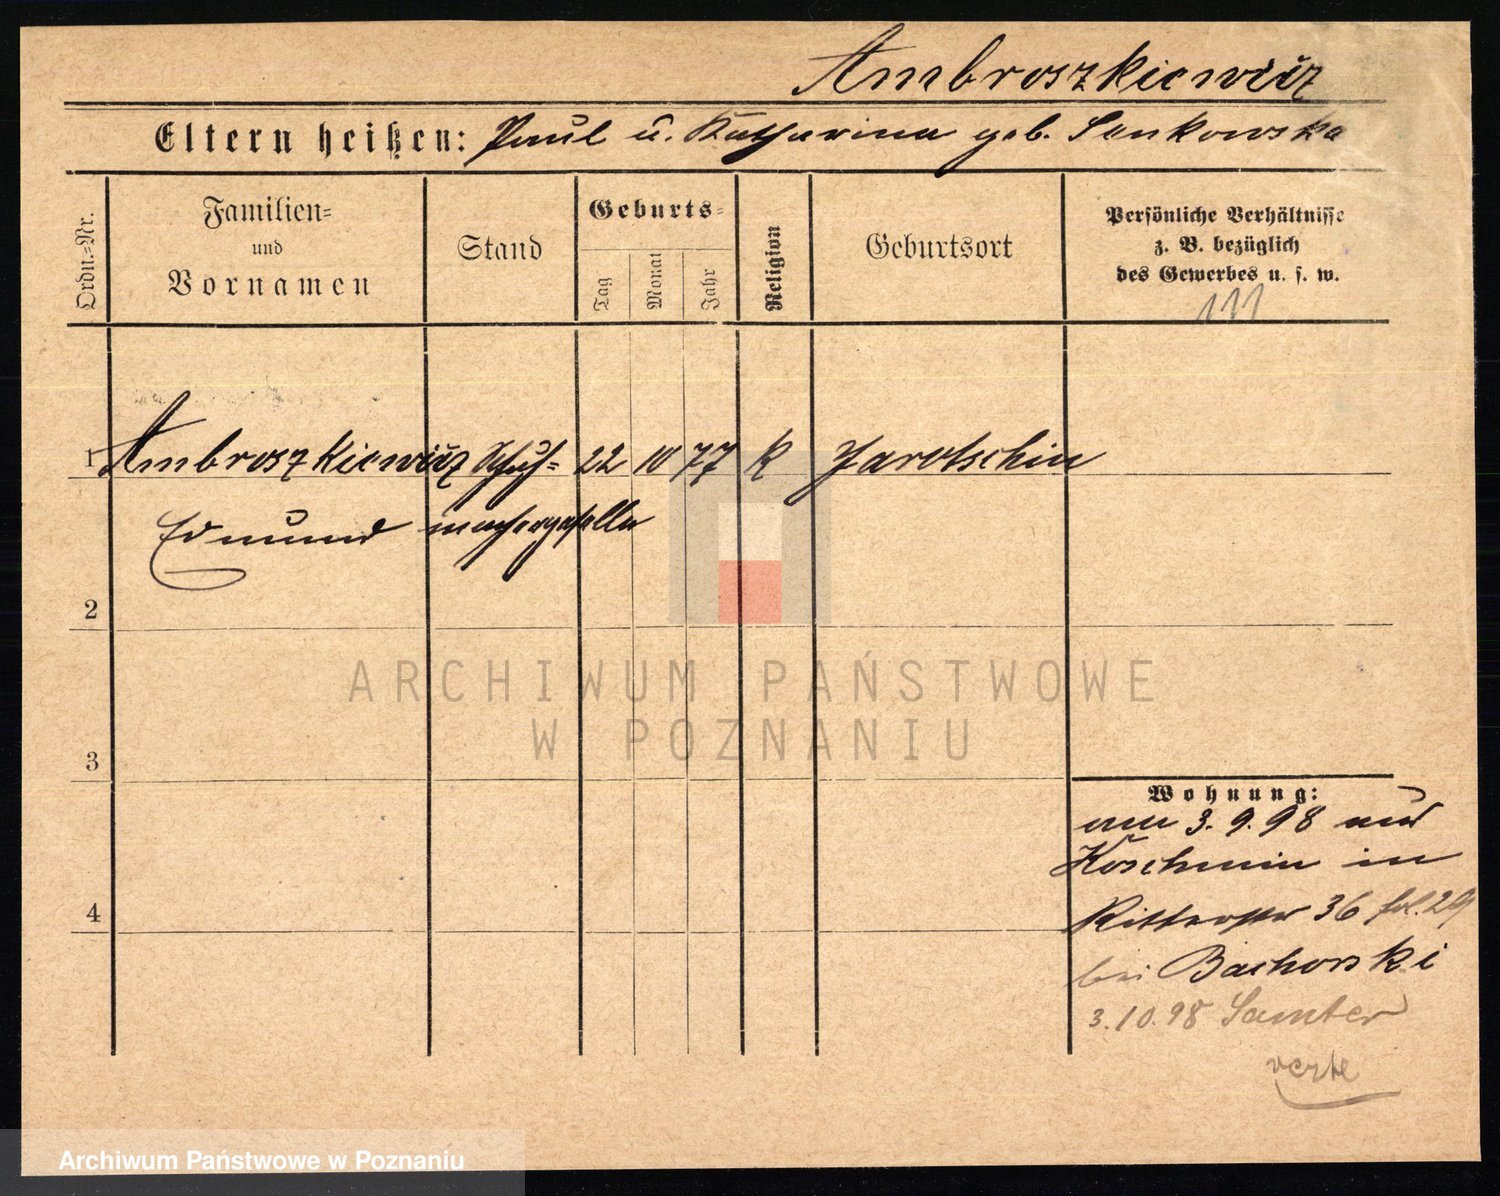 Ambroszkiewicz
Eltern heißen: Paul u. Katharina geb. Senkowska
Ordn.=Nr.
Familien=
und
Vornamen
Stand
Geburts=
Tag
Monat
Jahr
Religion
Geburtsort
Persönliche Verhältnisse
z. B. bezüglich
des Gewerbes u. s. w.
1 Ambroszkiewicz Schuh= 22 10 77 K Jarotschin
Edmund machergeselle
2
ARCHIWUM PAŃSTWOWE
W POZNANIU
3
Wohnung:
am 3. 9. 98 aus
Koschmin in
4
Ritterstr 36 fol. 29
bei Bachorski
3. 10. 98 Samter
verte
Archiwum Państwowe w Poznaniu